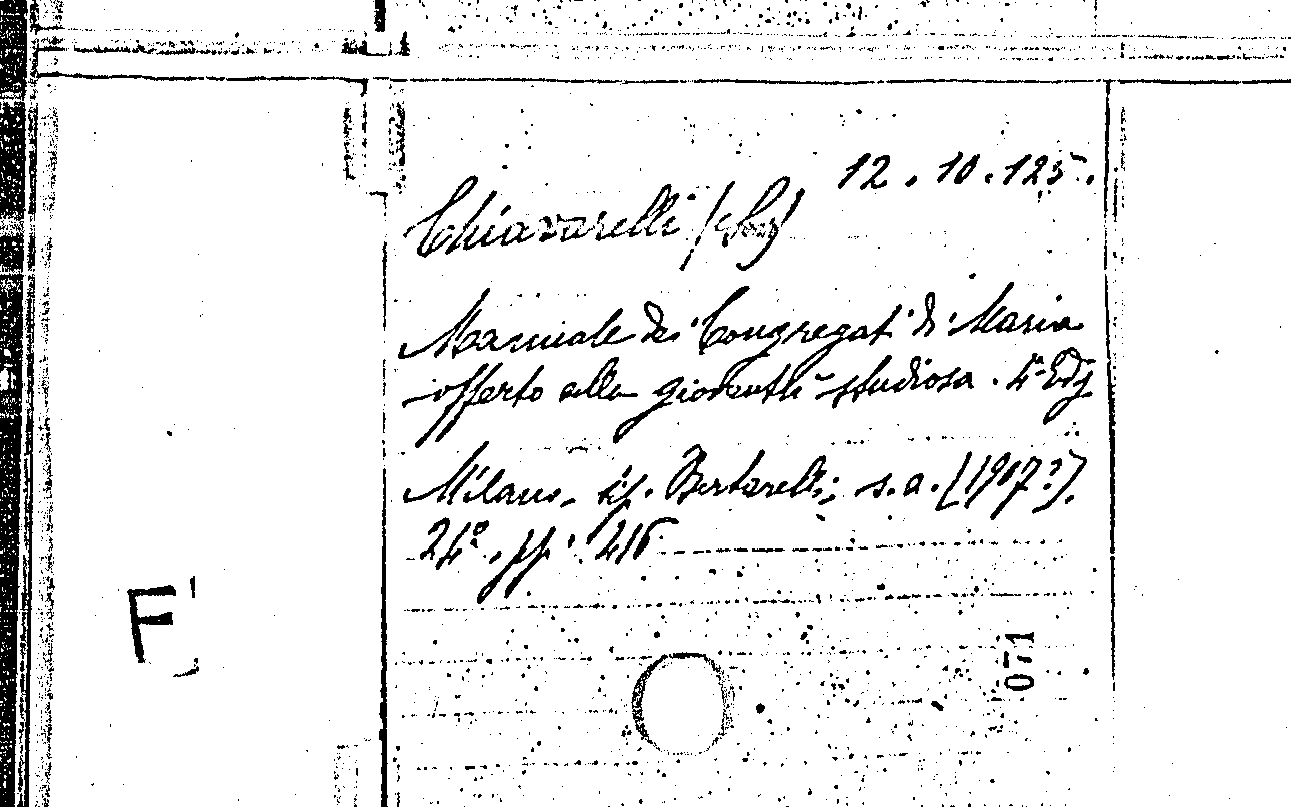 12.10.125.
Chiavarelli
Manuale dei Congregati di Maria
offerto alla gioventù studiosa. 4ª Ediz
Milano, tip. Bertarelli, s.a. [1907?].
24º, pp. 416
F
071